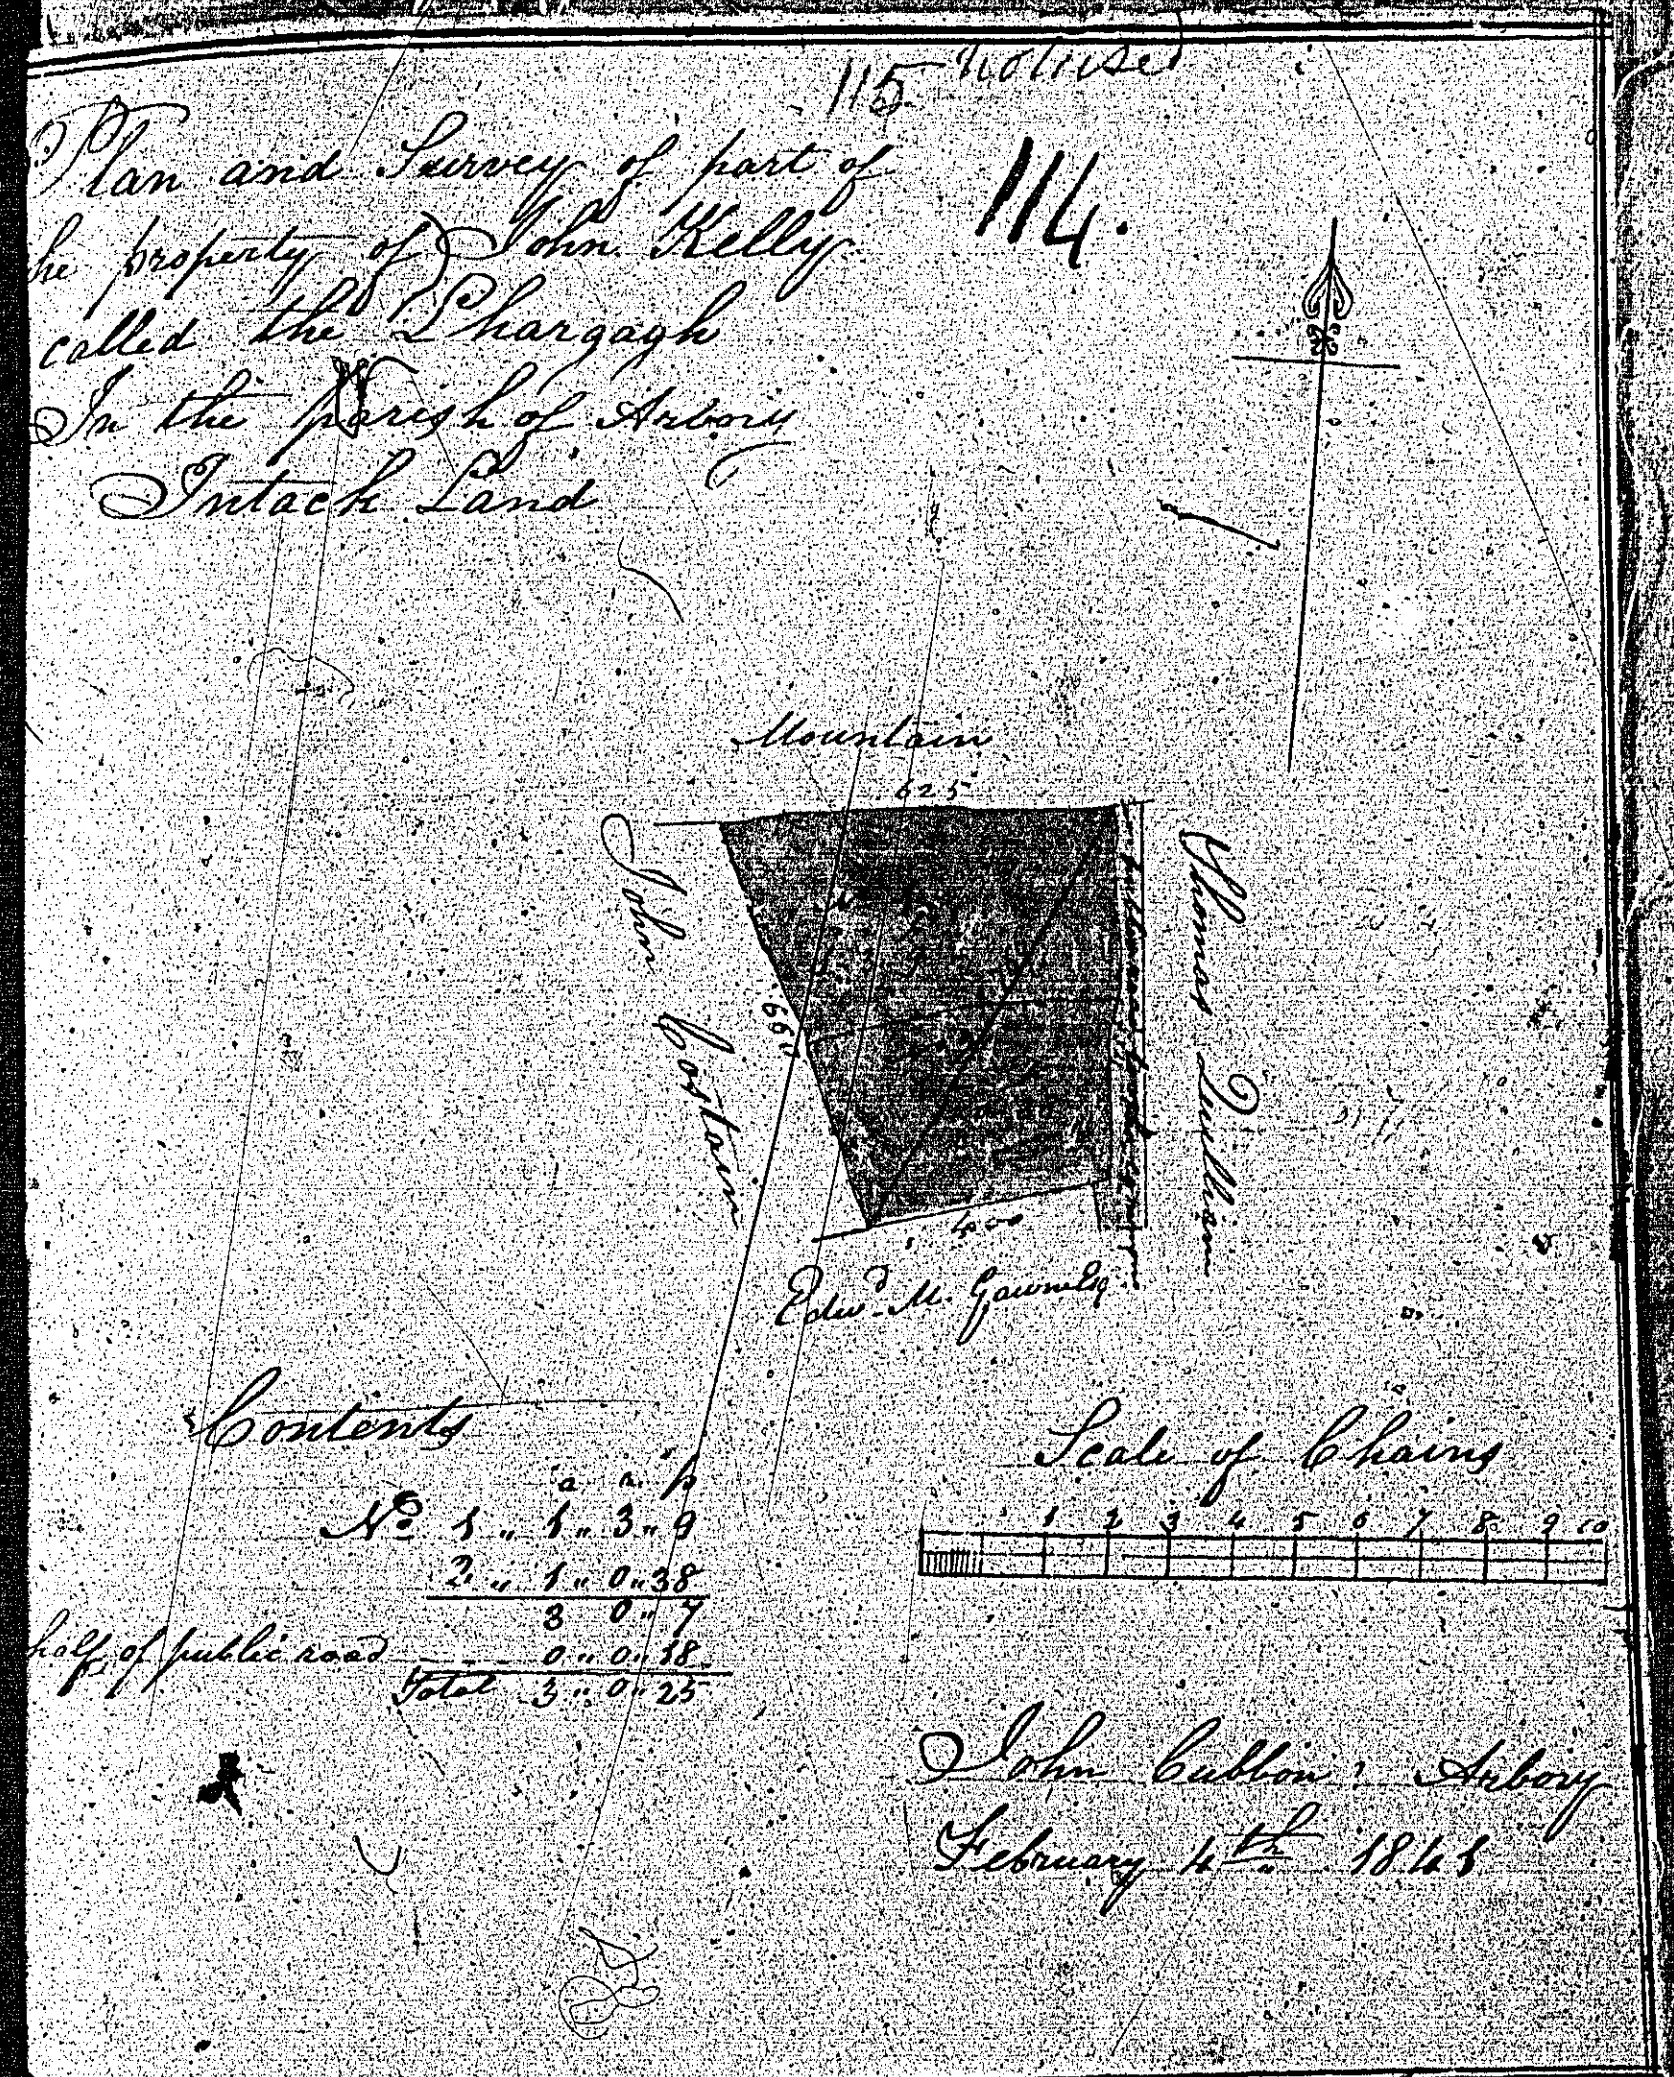 115 not used
114.
Plan and Survey of part of
the property of John Kelly
called the Lhargagh
In the parish of Arbory
Intack Land
Mountain
625
John Costain
660
Thomas Qullin
400
Edwd. M. Gawne Esq
Contents
a a p
No 1 " 1 " 3 " 9
2 " 1 " 0 " 38
3 0 " 7
half of public road 0 " 0 " 18
Total 3 " 0 " 25
Scale of Chains
1 2 3 4 5 6 7 8 9 10
John Cubbon Arbory
February 4th 1841